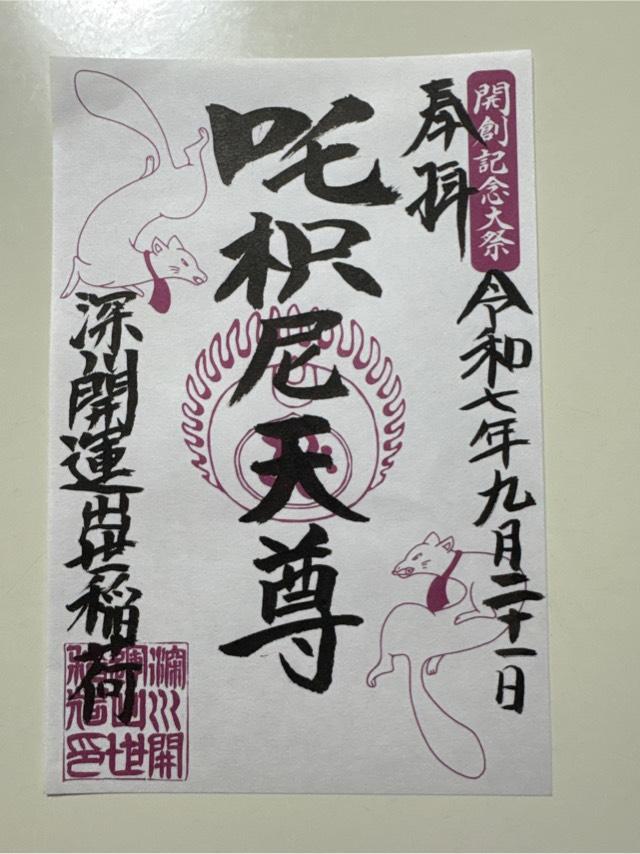 開創記念大祭
奉拝
令和七年九月二十一日
吒枳尼天尊
深川開運出世稲荷
深川開
運出世
稲荷印